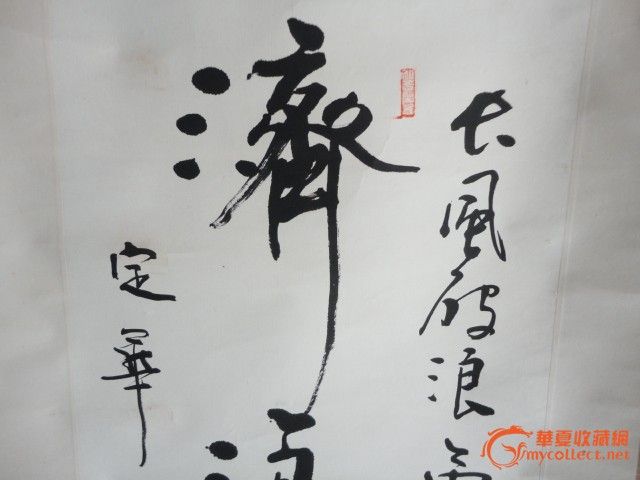 长风破浪會
濟海
定華
華夏收藏網
mycollect.net